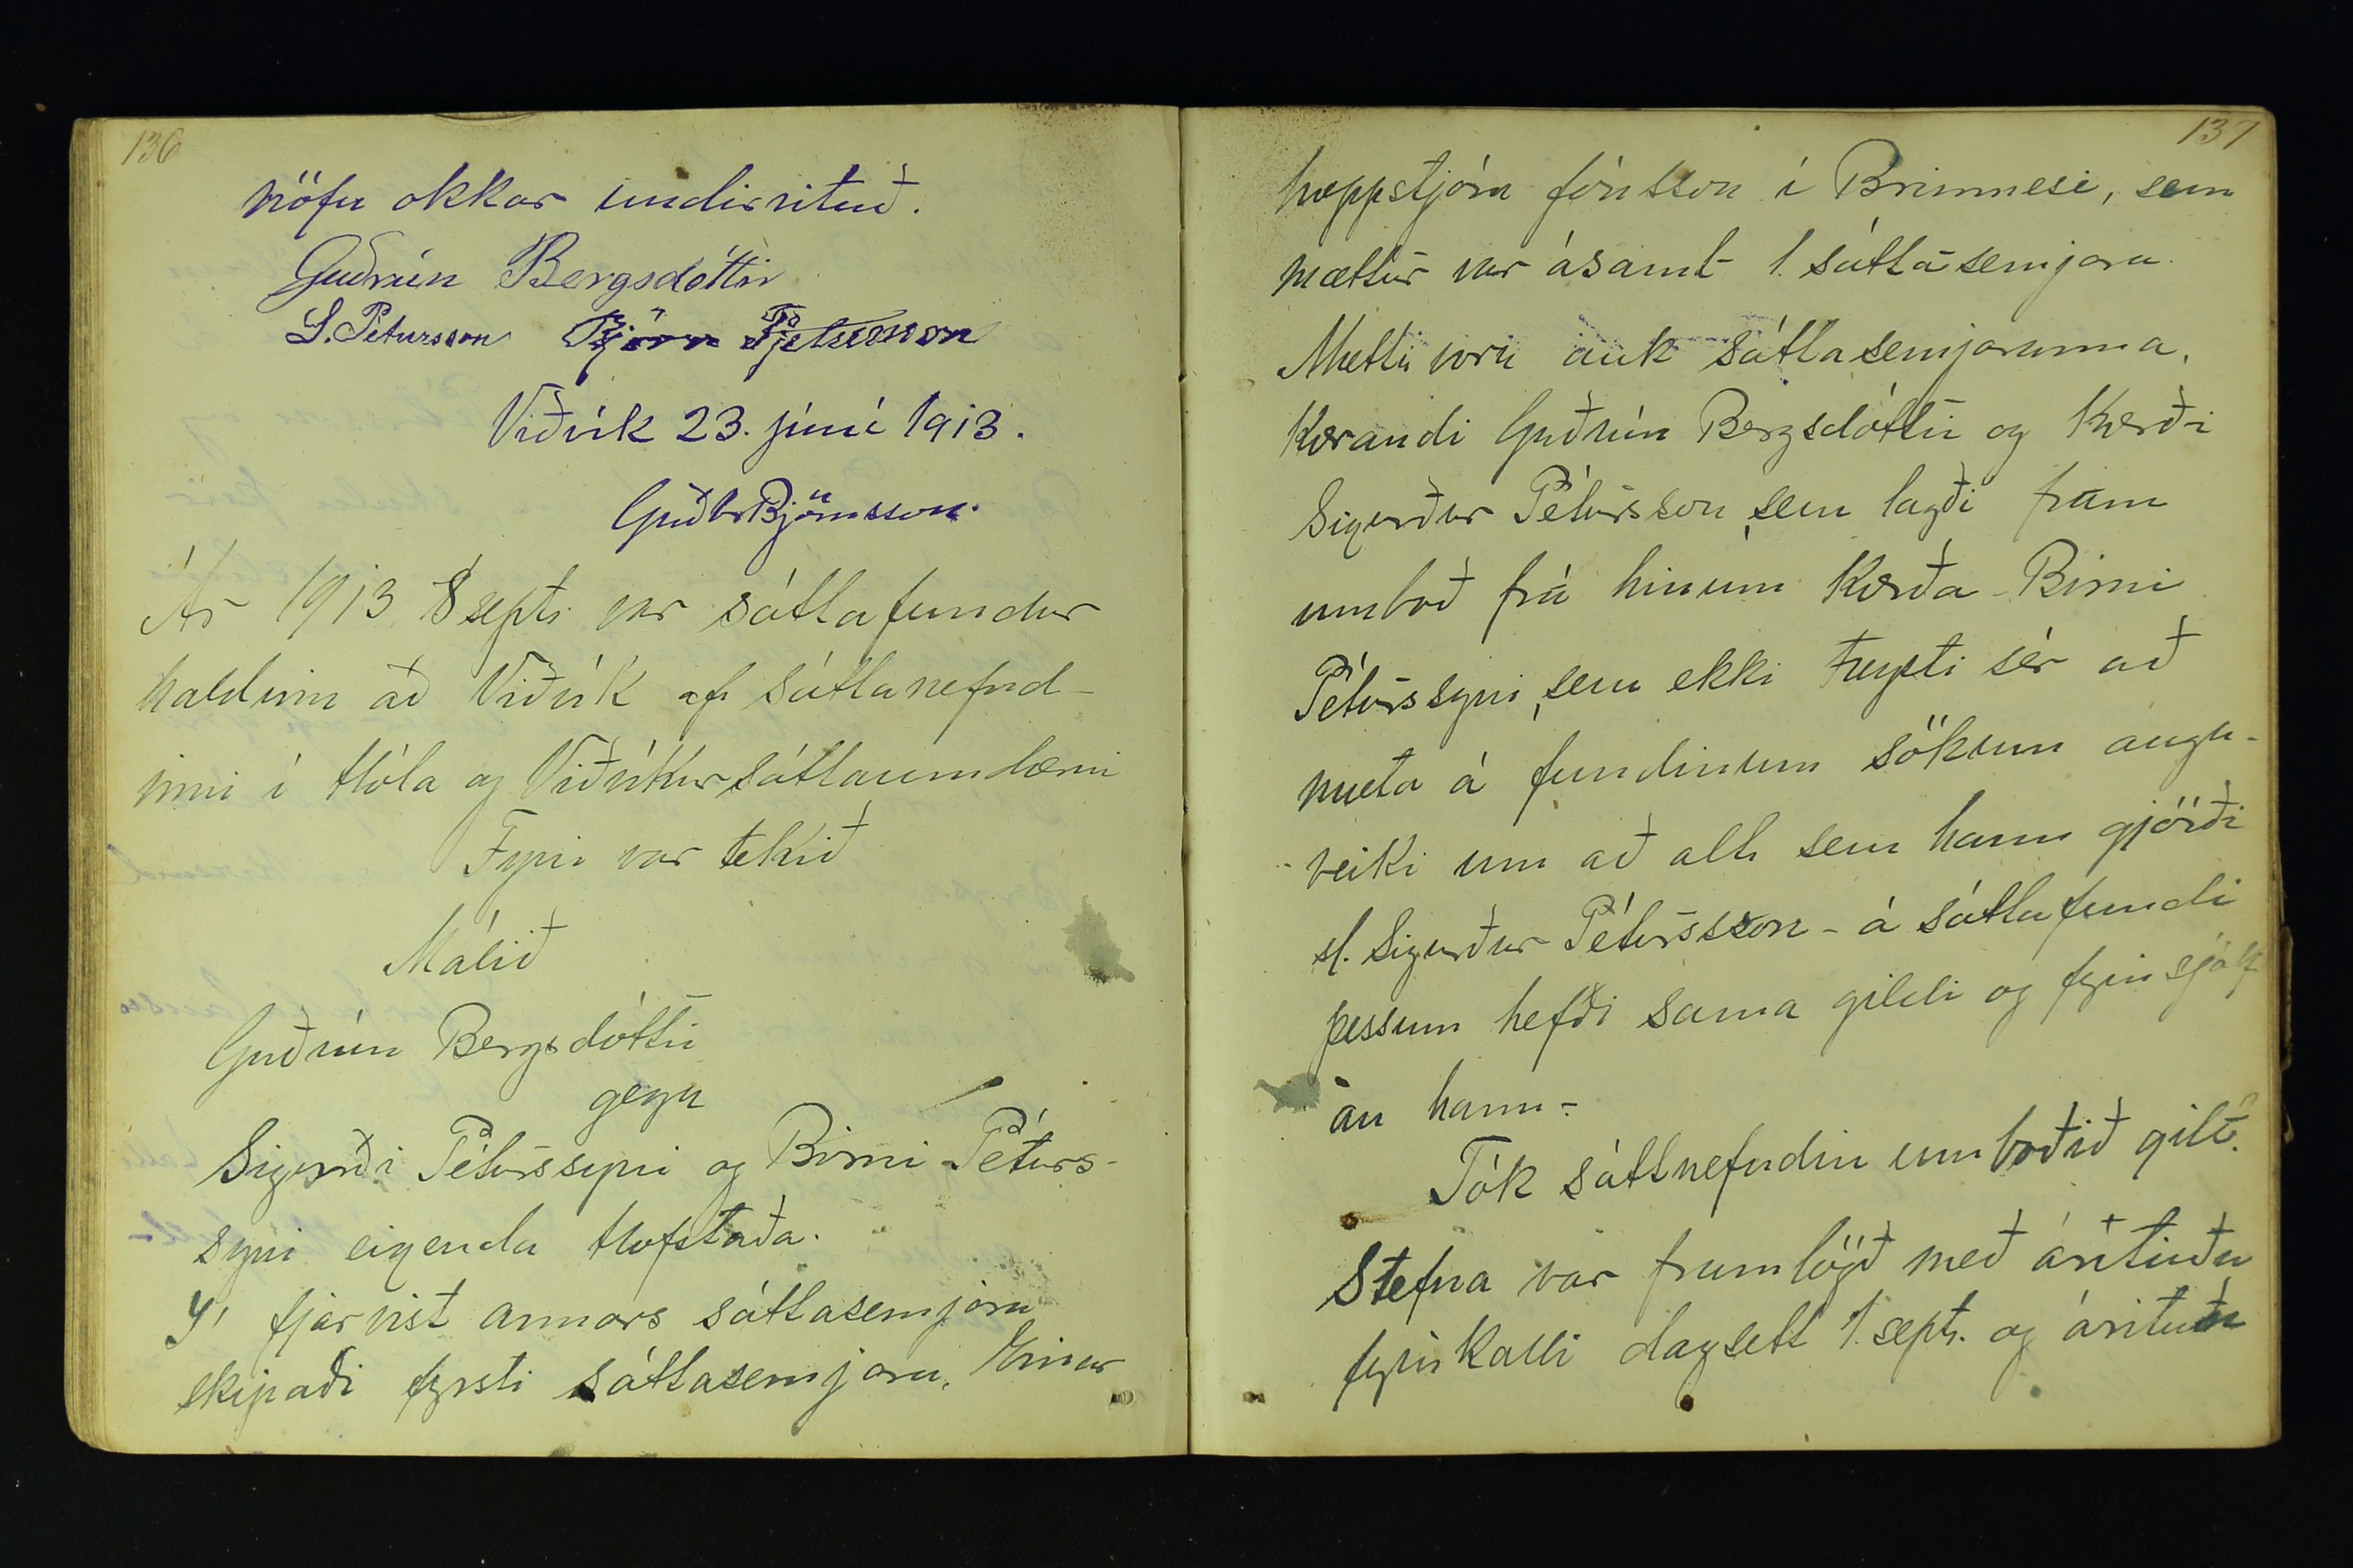 136
nöfn okkar undirrituð.
Guðrún Bergsdóttir
S. Pétursson Björn Pjetursson
Viðvík 23. júní 1913.
Guðbr Björnsson.
Ár 1913 8 sept. var sáttafundur
haldinn að Viðvík af sáttanefnd-
inni í Hóla og Viðvíkursáttaumdæmi
Fyrir var tekið
Málið
Guðrún Bergsdóttir
gegn
Sigurði Péturssyni og Birni Péturs-
syni eigenda Hofstaða.
Í fjarvist annars sáttasemjara
skipaði fyrsti sáttasemjara,
137
hreppstjóra Jónsson í Brimnesi, sem
mættur var ásamt 1. sáttasemjara.
Mættir voru auk sáttasemjaranna,
Kærandi Guðrún Bergsdóttir og Kærði
Sigurður Pétursson, sem lagði fram
umboð frá hinum Kærða - Birni
Péturssyni, sem ekki treysti sér að
mæta á fundinum sökum augn-
veiki um að allt sem hann gjörði
sl. Sigurður Pétursson - á sáttafundi
þessum hefði sama gildi og fyrir sjálf
an hann -
Tók sáttnefndin umboðið gilt.
Stefna var framlögð með árituðu
fyrirkalli dagsett 1. sept. og árituðu